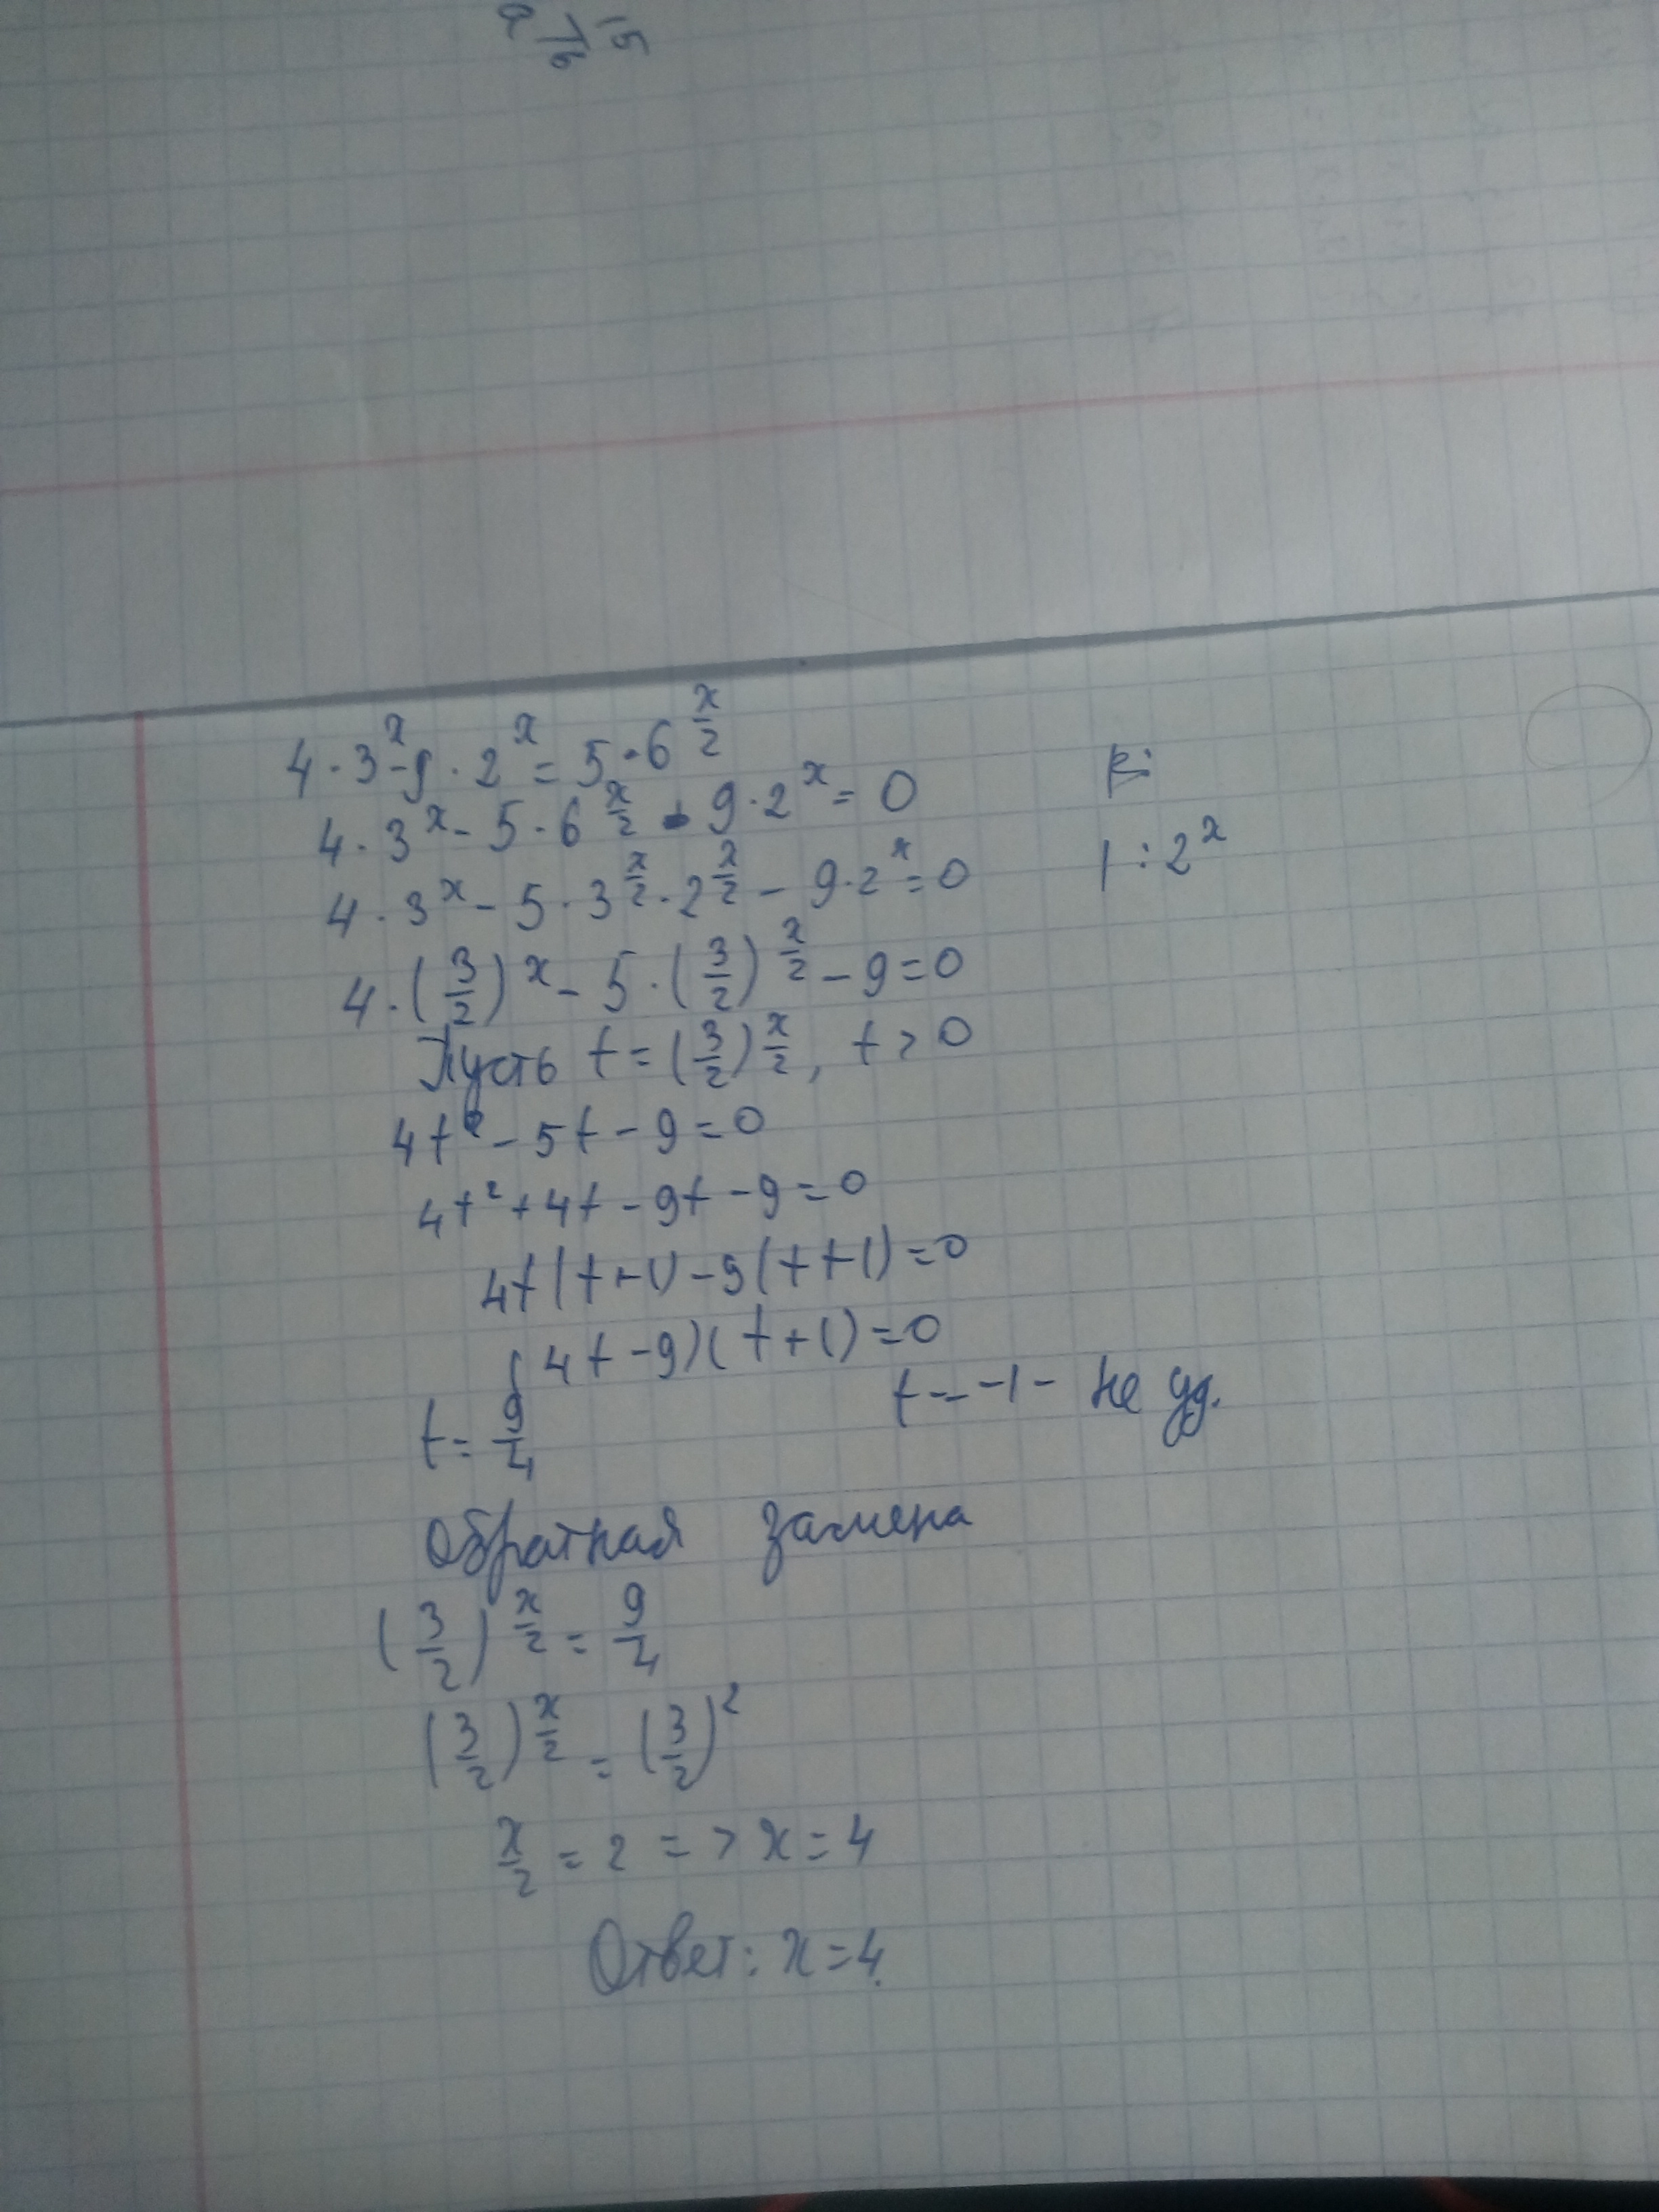 4·3^x-9·2^x=5·6^(x/2)
4·3^x-5·6^(x/2)-9·2^x=0
4·3^x-5·3^(x/2)·2^(x/2)-9·2^x=0 |:2^x
4·(3/2)^x-5·(3/2)^(x/2)-9=0
Пусть t=(3/2)^(x/2), t>0
4t²-5t-9=0
4t²+4t-9t-9=0
4t(t+1)-9(t+1)=0
(4t-9)(t+1)=0
t=9/4 t=-1- не уд.
Обратная замена
(3/2)^(x/2)=9/4
(3/2)^(x/2)=(3/2)²
x/2=2=>x=4
Ответ: x=4.